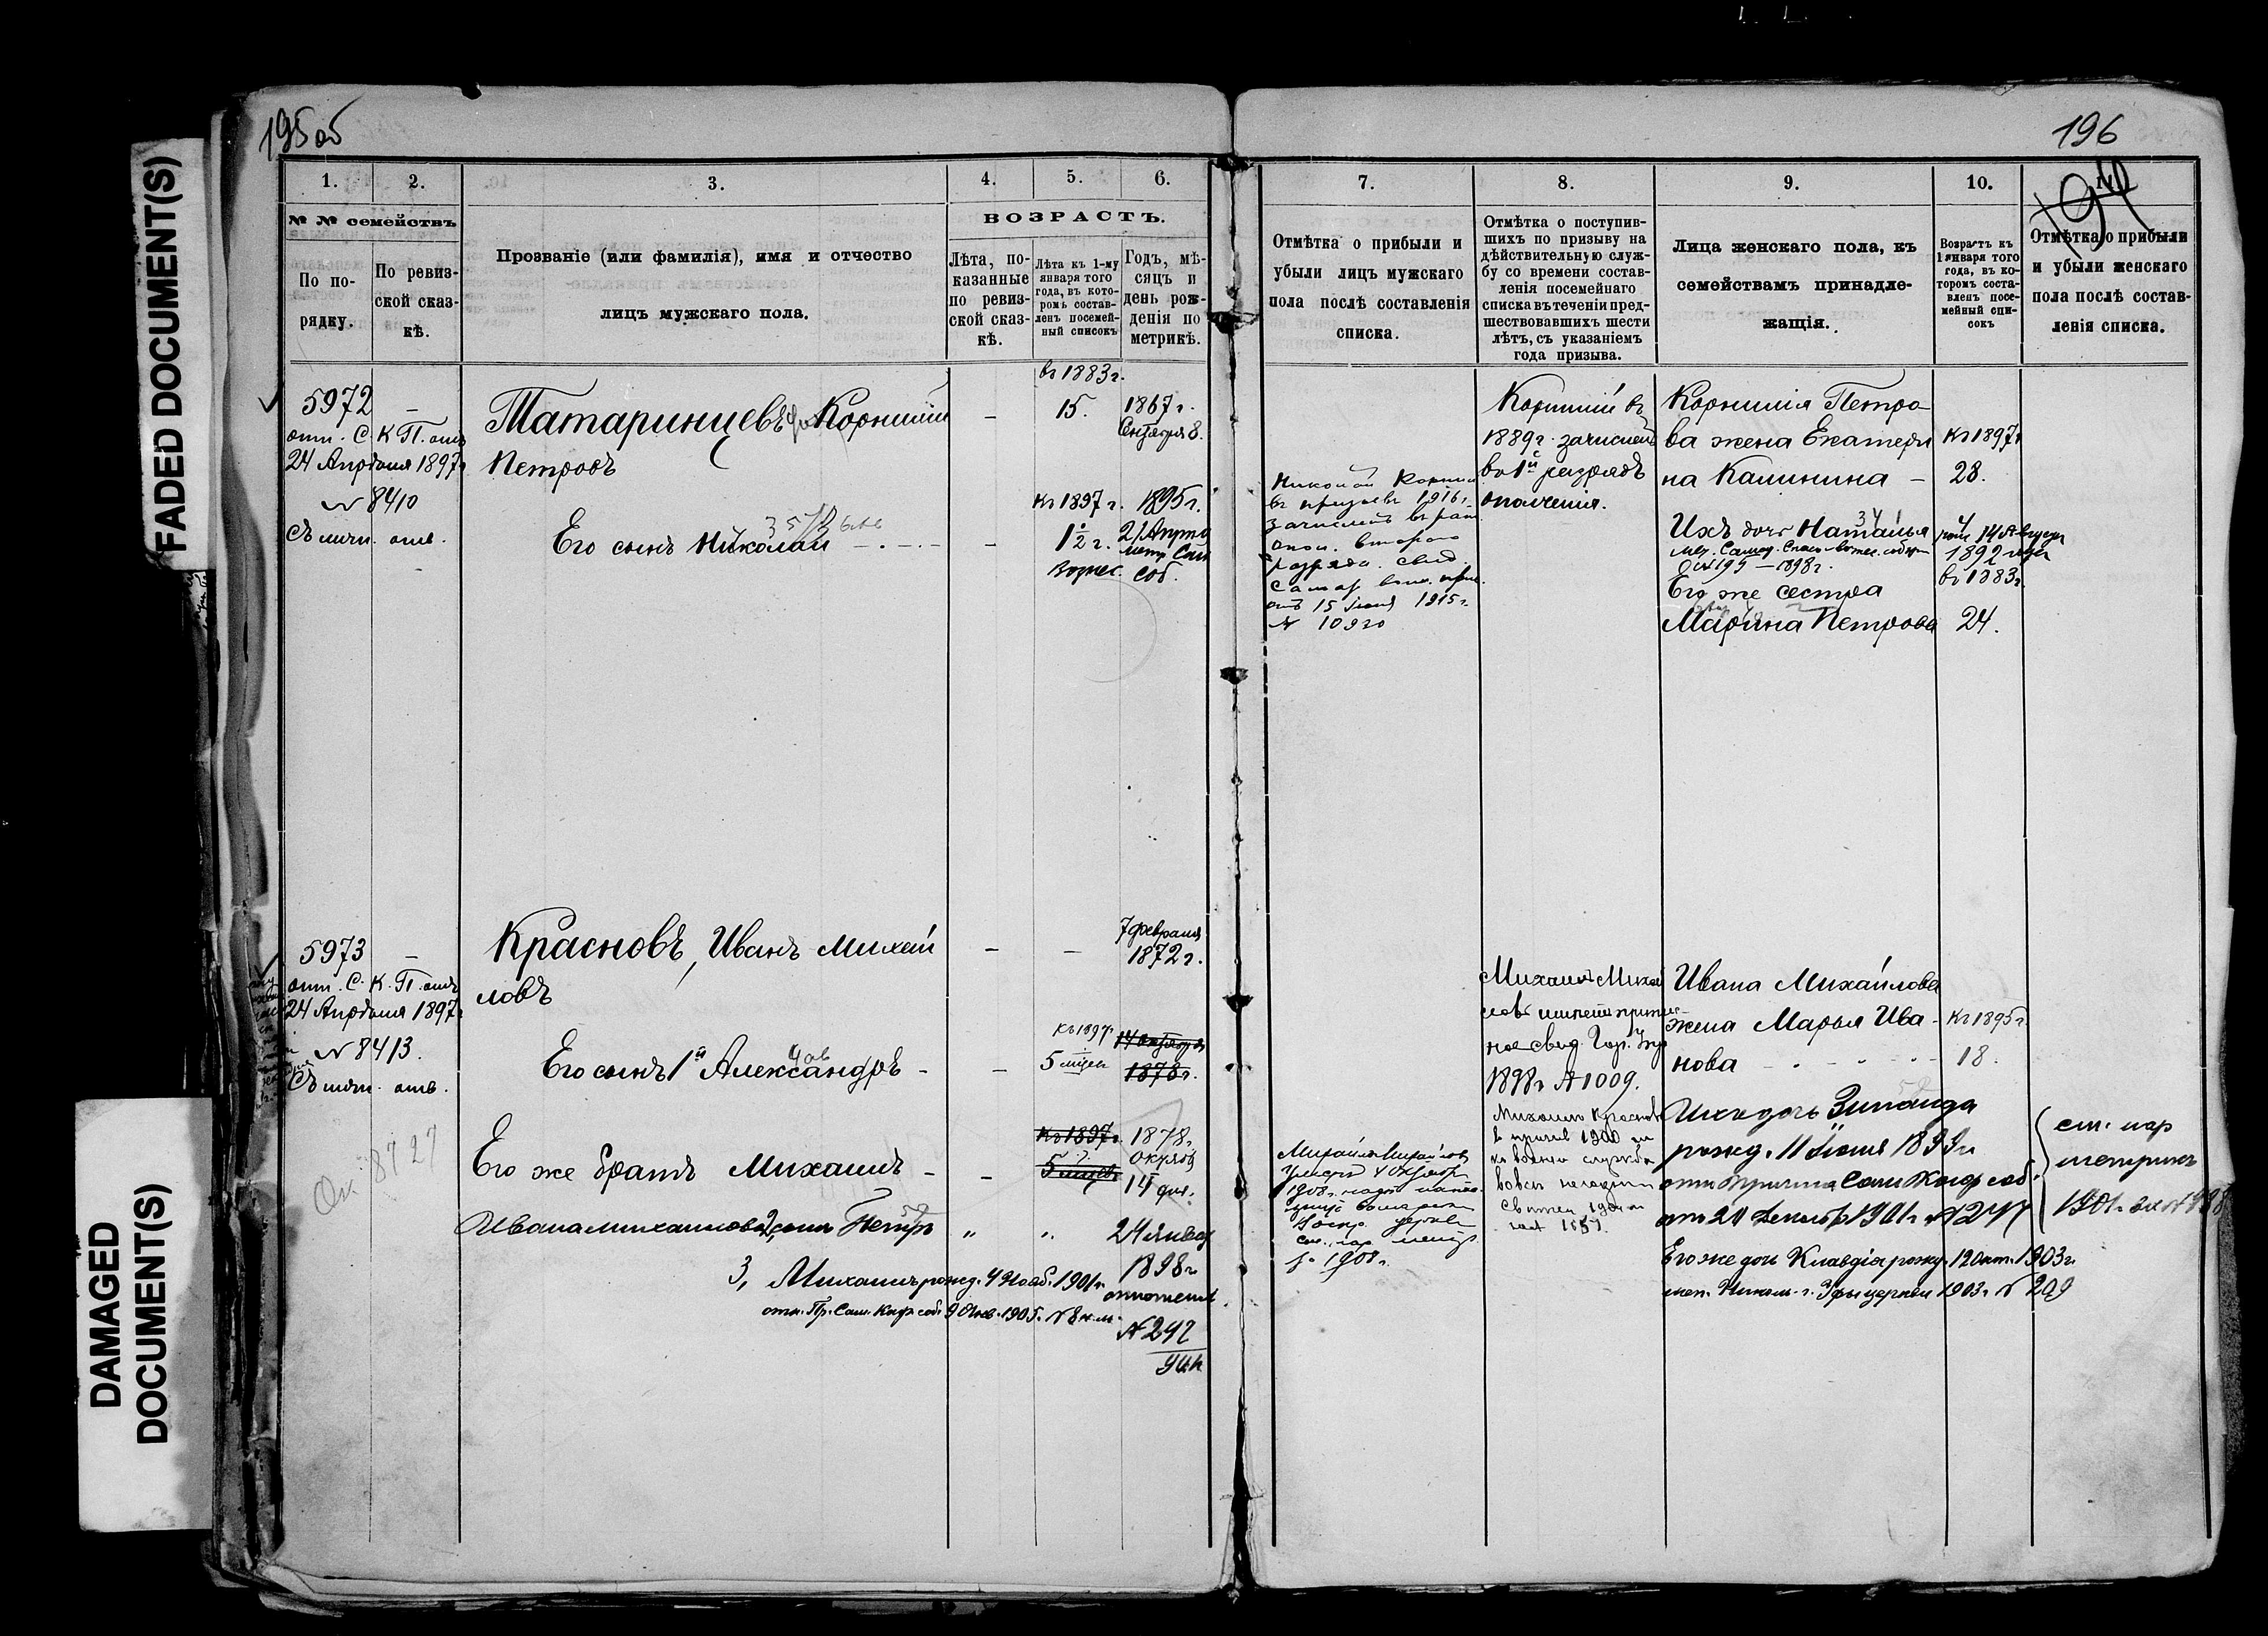 FADED DOCUMENT(S)
DAMAGED
DOCUMENT(S)
195об
1.
2.
3.
4.
5.
6.
№ № семействъ
По по-
рядку.
По ревиз-
ской сказ-
кѣ.
Прозваніе (или фамилія), имя и отчество
лицъ мужскаго пола.
ВОЗРАСТЪ.
Лѣта, по-
казанные
по ревиз-
ской сказ-
кѣ.
Лѣта къ 1-му
января того
года, въ кото-
ромъ состав-
ленъ посемей-
ный списокъ
Годъ, мѣ-
сяцъ и
день рож-
денія по
метрикѣ.
въ 1883 г.
5972 –
отн. С. К. П. отъ
24 Апрѣля 1897 г
№ 8410
Съ мѣщ. отв.
Татаринцевъ Корнилій
Петровъ
– 15. 1867 г.
Сентября 8.
Его сынъ Николай
– къ 1897 г.
1½ г.
1895 г.
21 Апрѣля
соб.
5973 –
отн. С. К. П. отъ
24 Апрѣля 1897 г
№ 8413.
Съ мѣщ. отв.
Красновъ, Иванъ Михай
ловъ
– – 7 февраля
1872 г.
Его сынъ 1й Александръ –
– къ 1897 г
5 мѣсяц
14 октября
1878 г.
Его же братъ Михаилъ –
– къ 1897 г.
5 мѣсяц
1878 г.
Октяб
14 дня.
Ивана Михайлова 2, сынъ Петръ „ „ 24 Января
1898 г
3, Михаилъ рожд. 4 Нояб. 1901 г.
отн. Пр. Сам. Кафр. соб. 9 Янв. 1905. № 8
№ 242
196
194
7.
8.
9.
10.
11.
Отмѣтка о прибыли и
убыли лицъ мужскаго
пола послѣ составленія
списка.
Отмѣтка о поступив-
шихъ по призыву на
дѣйствительную служ-
бу со времени состав-
ленія посемейнаго
списка въ теченіи пред-
шествовавшихъ шести
лѣтъ, съ указаніемъ
года призыва.
Лица женскаго пола, къ
семействамъ принадле-
жащія.
Возрастъ къ
1 января того
года, въ ко-
торомъ соста-
вленъ посе-
мейный спи-
сокъ
Отмѣтка о прибыли
и убыли женскаго
пола послѣ состав-
ленія списка.
Николай Корнил
въ призывъ 1916 г.
зачисленъ въ рат
опол. второго
разряда. свид.
Самар. воин. прис.
отъ 15 Іюня 1915 г.
№ 10920
Корнилій въ
1889 г. зачисленъ
въ 1й разрядъ
ополченія.
Корнилія Петро-
ва жена Екатери
на Калинина –
къ 1897 г
28.
Ихъ дочь Наталья
14 Августа
1892 года
№ 195 – 1898 г.
Его же сестра
Марина Петрова
въ 1883 г.
24.
Михаилъ Михай
1898 г № 1009.
Михаилъ Красновъ
въ призывъ 1900 г
къ военной службѣ
вовсе негоднымъ
Михаилъ Михайловъ
умеръ 4 Октября
1908 г.
1908 г.
Ивана Михайлова
жена Марья Ива-
нова
къ 1895 г.
18.
Ихъ дочь Зинаида
рожд. 11 Іюня 1899 г
отн. причта Сам. Кафр. соб.
отъ 20 Декабр 1901 г. № 1247
Его же дочь Клавдія рожд. 12 окт. 1903 г.
мет. Никол. г. Уфы церкви 1903 г. № 209
см. пар
метрикъ
1901 г.